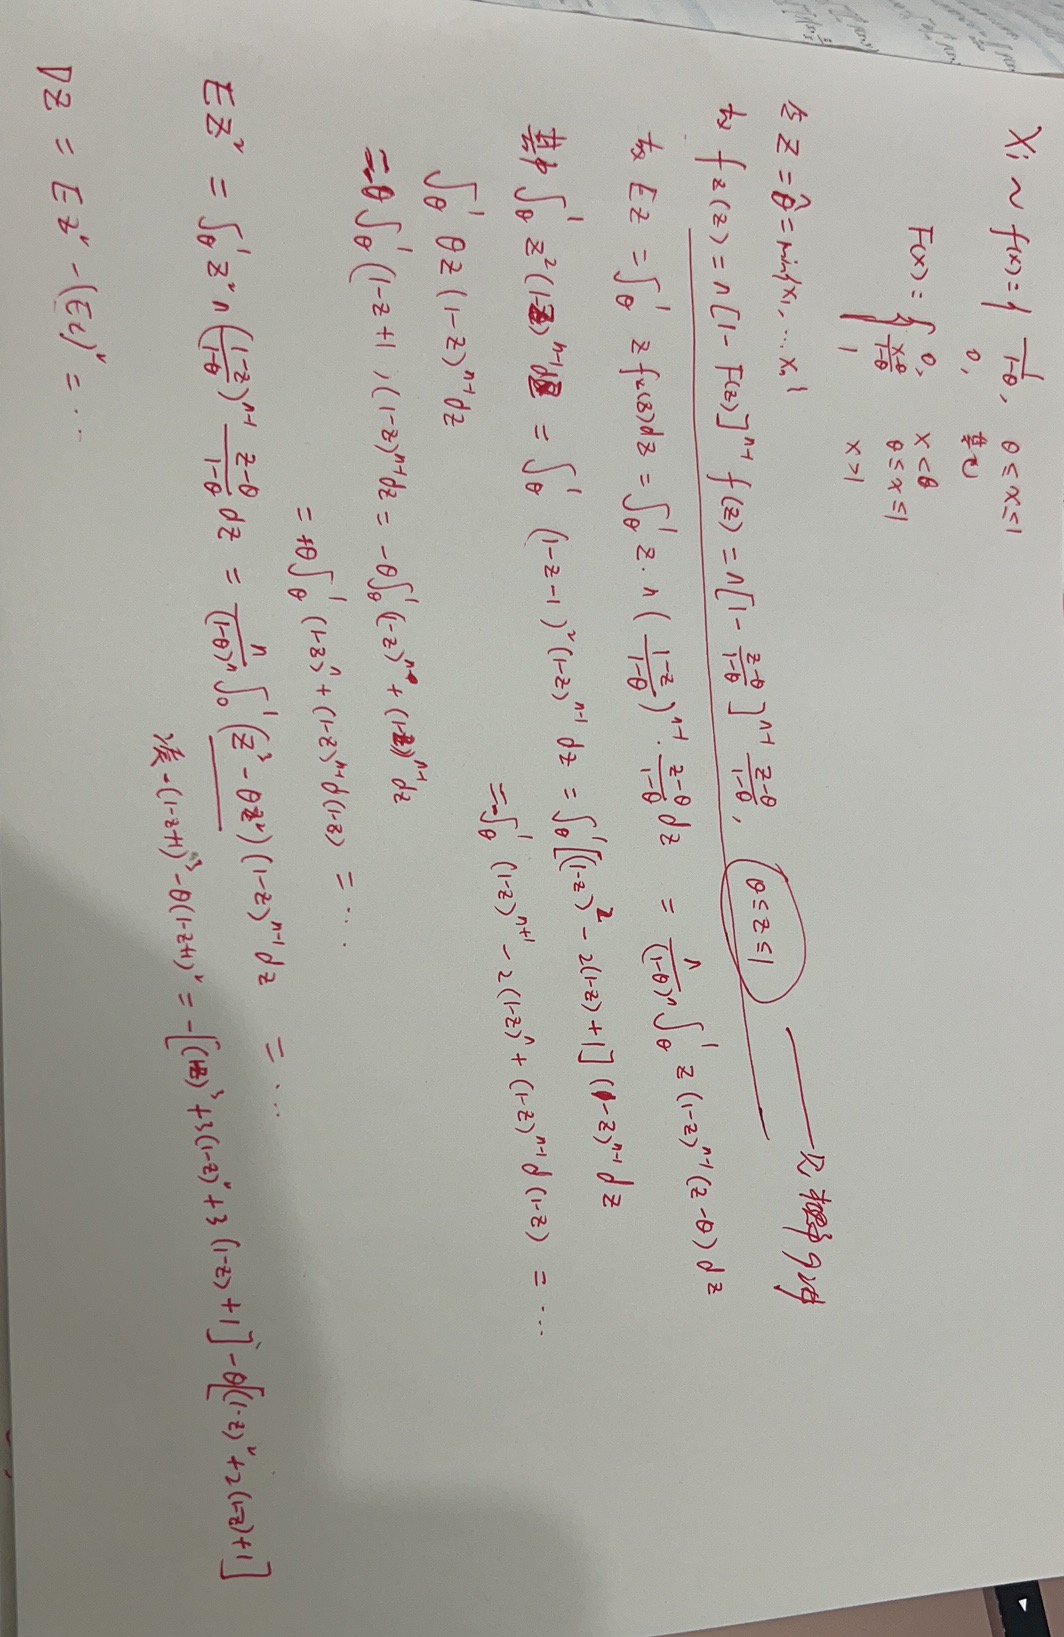 X_i ~ f(x) = { 1/(1-θ), θ ≤ x ≤ 1
0, 其它
F(x) = { 0, x < θ
(x-θ)/(1-θ) θ ≤ x ≤ 1
1 x > 1
令 Z = θ̂ = min{x₁, … xₙ}
故 f_Z(z) = n[1 - F(z)]^{n-1} f(z) = n[1 - (z-θ)/(1-θ)]^{n-1} (z-θ)/(1-θ), θ ≤ z ≤ 1
故 EZ = ∫_θ^1 z f_Z(z)dz = ∫_θ^1 z · n((1-z)/(1-θ))^{n-1} · (z-θ)/(1-θ) dz = n/(1-θ)^n ∫_θ^1 z(1-z)^{n-1}(z-θ)dz
其中 ∫_θ^1 z²(1-z)^{n-1}dz = ∫_θ^1 (1-z-1)²(1-z)^{n-1}dz = ∫_θ^1 [(1-z)² - 2(1-z)+1](1-z)^{n-1}dz
= -∫_θ^1 (1-z)^{n+1} - 2(1-z)^n + (1-z)^{n-1}d(1-z) = …
∫_θ^1 θz(1-z)^{n-1}dz
= -θ∫_θ^1 (1-z+1)(1-z)^{n-1}dz = -θ∫_θ^1 (1-z)^n + (1-z)^{n-1}dz
= +θ∫_θ^1 (1-z)^n + (1-z)^{n-1}d(1-z) = …
EZ² = ∫_θ^1 z² n((1-z)/(1-θ))^{n-1} (z-θ)/(1-θ) dz = n/(1-θ)^n ∫_0^1 (z³ - θz²)(1-z)^{n-1}dz = …
-(1-z+1)³ - θ(1-z+1)² = -[(1-z)³ + 3(1-z)² + 3(1-z) + 1] - θ[(1-z)² + 2(1-z) + 1]
DZ = EZ² - (EZ)² = …